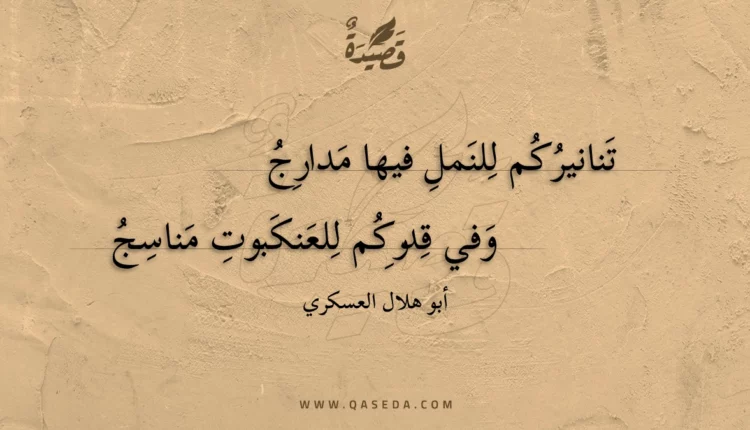 قَصِيدَةٌ
تَنانيرُكُم لِلنَملِ فيها مَدارِجُ
وَفي قِدوِكُم لِلعَنكَبوتِ مَناسِجُ
أبو هلال العسكري
WWW.QASEDA.COM